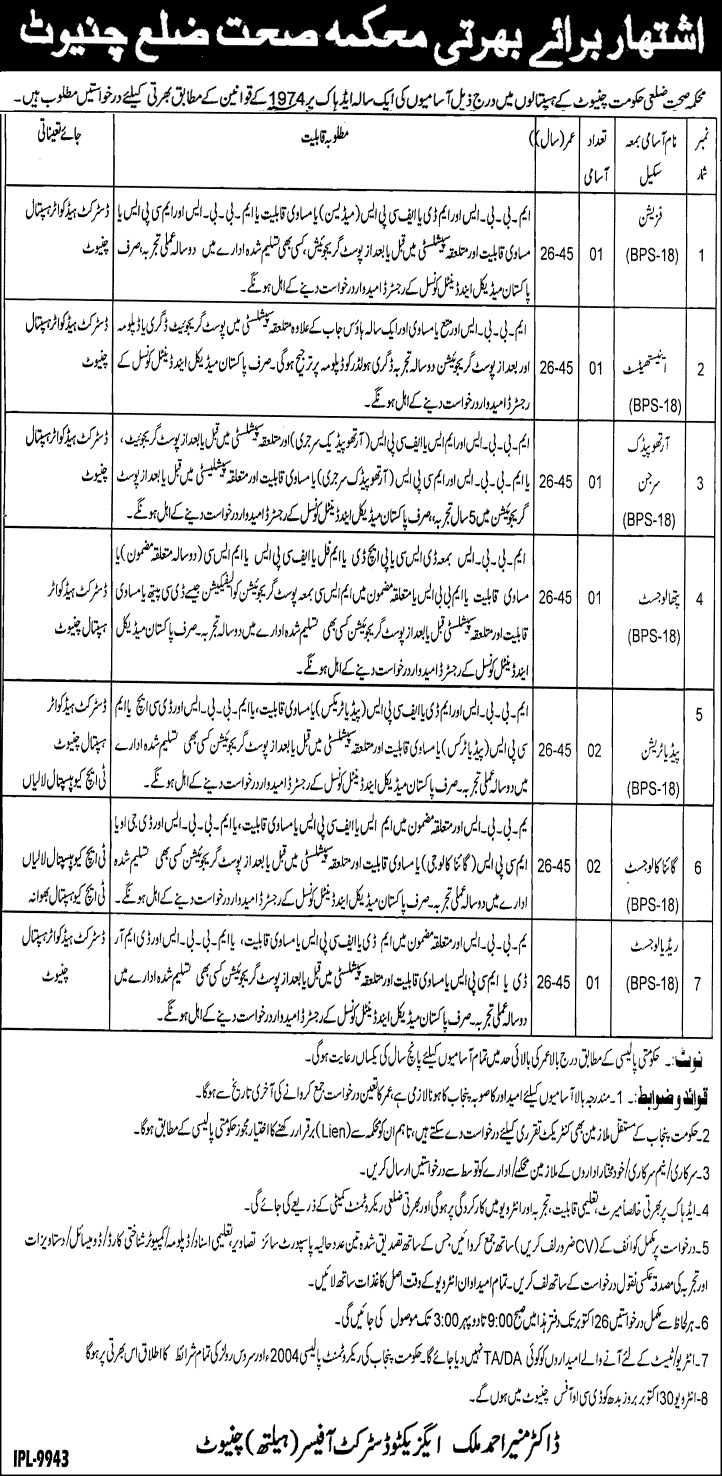 اشتہار برائے بھرتی محکمہ صحت ضلع چنیوٹ
محکمہ صحت ضلعی حکومت چنیوٹ کے ہسپتالوں میں درج ذیل آسامیوں کی ایک سالہ ایڈہاک پر 1974 کے قوانین کے مطابق بھرتی کیلئے درخواستیں مطلوب ہیں۔
نمبر شمار
نام آسامی بمعہ سکیل
تعداد آسامی
عمر (سال)
مطلوبہ قابلیت
جائے تعیناتی
1
فزیشن
(BPS-18)
01
26-45
ایم۔بی۔بی۔ایس اور ایم ڈی یا ایف سی پی ایس (میڈیسن) یا مساوی قابلیت یا ایم۔بی۔بی۔ایس اور ایم سی پی ایس یا
مساوی قابلیت اور متعلقہ سپیشلسٹی میں قبل یا بعد از پوسٹ گریجوئیشن، کسی بھی تسلیم شدہ ادارے میں دو سالہ عملی تجربہ، صرف
پاکستان میڈیکل اینڈ ڈینٹل کونسل کے رجسٹرڈ امیدوار درخواست دینے کے اہل ہونگے۔
ڈسٹرکٹ ہیڈ کواٹر ہسپتال
چنیوٹ
2
اینستھیٹسٹ
(BPS-18)
01
26-45
ایم۔بی۔بی۔ایس اور متبع یا مساوی اور ایک سالہ ہاؤس جاب کے علاوہ متعلقہ سپیشلسٹی میں پوسٹ گریجوئیٹ ڈگری یا ڈپلومہ
اور بعد از پوسٹ گریجوئیشن دو سالہ تجربہ ڈگری ہولڈر کو ڈپلومہ پر ترجیح ہوگی۔ صرف پاکستان میڈیکل اینڈ ڈینٹل کونسل کے
رجسٹرڈ امیدوار درخواست دینے کے اہل ہونگے۔
ڈسٹرکٹ ہیڈ کواٹر ہسپتال
چنیوٹ
3
آرتھوپیڈک
سرجن
(BPS-18)
01
26-45
ایم۔بی۔بی۔ایس اور ایم ایس یا ایف سی پی ایس (آرتھوپیڈیک سرجری) اور متعلقہ سپیشلسٹی میں قبل یا بعد از پوسٹ گریجوئیٹ،
یا ایم۔بی۔بی۔ایس اور ایم سی پی ایس (آرتھوپیڈک سرجری) یا مساوی قابلیت اور متعلقہ سپیشلیسٹی میں قبل یا بعد از پوسٹ
گریجوئیشن میں 5 سال تجربہ، صرف پاکستان میڈیکل اینڈ ڈینٹل کونسل کے رجسٹرڈ امیدوار درخواست دینے کے اہل ہونگے۔
ڈسٹرکٹ ہیڈ کواٹر ہسپتال
چنیوٹ
4
پتھالوجسٹ
(BPS-18)
01
26-45
ایم۔بی۔بی۔ایس بمعہ ڈی ایس سی یا پی ایچ ڈی یا ایم فل یا ایف سی پی ایس یا ایم ایس سی (دو سالہ متعلقہ مضمون) یا
مساوی قابلیت یا ایم بی بی ایس یا متعلقہ مضمون میں ایم ایس سی بمعہ پوسٹ گریجوئیشن کوالیفکیشن جیسے ڈی سی پیتھ یا مساوی
قابلیت اور متعلقہ سپیشلسٹی قبل یا بعد از پوسٹ گریجوئیشن کسی بھی تسلیم شدہ ادارے میں دو سالہ تجربہ۔ صرف پاکستان میڈیکل
اینڈ ڈینٹل کونسل کے رجسٹرڈ امیدوار درخواست دینے کے اہل ہونگے۔
ڈسٹرکٹ ہیڈ کواٹر
ہسپتال چنیوٹ
5
پیڈیاٹریشن
(BPS-18)
02
26-45
ایم۔بی۔بی۔ایس اور ایم ڈی یا ایف سی پی ایس (پیڈیاٹریکس) یا مساوی قابلیت، یا ایم۔بی۔بی۔ایس اور ڈی سی ایچ یا ایم
سی پی ایس (پیڈیاٹرکس) یا مساوی قابلیت اور متعلقہ سپیشلسٹی میں قبل یا بعد از پوسٹ گریجوئیشن کسی بھی تسلیم شدہ ادارے
میں دو سالہ عملی تجربہ۔ صرف پاکستان میڈیکل اینڈ ڈینٹل کونسل کے رجسٹرڈ امیدوار درخواست دینے کے اہل ہونگے۔
ڈسٹرکٹ ہیڈ کواٹر
ہسپتال چنیوٹ
ٹی ایچ کیو ہسپتال لالیاں
6
گائنا کالوجسٹ
(BPS-18)
02
26-45
یم۔بی۔بی۔ایس اور متعلقہ مضمون میں ایم ایس یا ایف سی پی ایس یا مساوی قابلیت، یا ایم۔بی۔بی۔ایس اور ڈی جی او یا
ایم سی پی ایس (گائنا کالوجی) یا مساوی قابلیت اور متعلقہ سپیشلسٹی میں قبل یا بعد از پوسٹ گریجوئیشن کسی بھی تسلیم شدہ
ادارے میں دو سالہ عملی تجربہ۔ صرف پاکستان میڈیکل اینڈ ڈینٹل کونسل کے رجسٹرڈ امیدوار درخواست دینے کے اہل ہونگے۔
ٹی ایچ کیو ہسپتال لالیاں
ٹی ایچ کیو ہسپتال بھوانہ
7
ریڈیالوجسٹ
(BPS-18)
01
26-45
یم۔بی۔بی۔ایس اور متعلقہ مضمون میں ایم ڈی یا ایف سی پی ایس یا مساوی قابلیت، یا ایم۔بی۔بی۔ایس اور ڈی ایم آر
ڈی یا ایم سی پی ایس یا مساوی قابلیت اور متعلقہ سپیشلسٹی میں قبل یا بعد از پوسٹ گریجوئیشن کسی بھی تسلیم شدہ ادارے میں
دو سالہ عملی تجربہ۔ صرف پاکستان میڈیکل اینڈ ڈینٹل کونسل کے رجسٹرڈ امیدوار درخواست دینے کے اہل ہونگے۔
ڈسٹرکٹ ہیڈ کواٹر ہسپتال
چنیوٹ
نوٹ:۔ حکومتی پالیسی کے مطابق درج بالا عمر کی بالائی حد میں تمام آسامیوں کیلئے پانچ سال کی یکساں رعایت ہوگی۔
قوائد و ضوابط:۔ 1۔ مندرجہ بالا آسامیوں کیلئے امیدوار کا صوبہ پنجاب کا ہونا لازمی ہے، عمر کا تعین درخواست جمع کروانے کی آخری تاریخ سے ہوگا۔
2۔ حکومت پنجاب کے مستقل ملازمین بھی کنٹریکٹ تقرری کیلئے درخواست دے سکتے ہیں، تاہم ان کو محکمہ سے (Lien) برقرار رکھنے کا اختیار مجوز حکومتی پالیسی کے مطابق ہوگا۔
3۔ سرکاری/نیم سرکاری/خود مختار اداروں کے ملازمین محکمے/ادارے کو توسط سے درخواستیں ارسال کریں۔
4۔ ایڈہاک پر بھرتی خالصتا میرٹ، تعلیمی قابلیت، تجربہ اور انٹرویو میں کارکردگی پر ہوگی اور بھرتی ضلعی ریکروٹمنٹ کمیٹی کے ذریعے کی جائے گی۔
5۔ درخواست پر مکمل کوائف کے (CV ضرور لف کریں) ساتھ جمع کروائیں جس کے ساتھ تصدیق شدہ تین عدد حالیہ پاسپورٹ سائز تصاویر، تعلیمی اسناد/ڈپلومہ/کمپیوٹر شناختی کارڈ/ڈومیسائل/دستاویزات
اور تجربہ کی مصدقہ عکسی نقول درخواست کے ساتھ لف کریں۔ تمام امیدوان انٹرویو کے وقت اصل کاغذات ساتھ لائیں۔
6۔ ہر لحاظ سے مکمل درخواستیں 26 اکتوبر تک دفتر ہذا میں صبح 9:00 تا دوپہر 3:00 تک موصول کی جائیں گی۔
7۔ انٹرویو/ٹیسٹ کے لئے آنے والے امیداروں کو کوئی TA/DA نہیں دیا جائے گا۔ حکومت پنجاب کی ریکروٹمنٹ پالیسی 2004ء اور سروس رولز کی تمام شرائط کا اطلاق اس بھرتی پر ہوگا
8۔ انٹرویو 30 اکتوبر بروز بدھ کو ڈی سی او آفس چنیوٹ میں ہوں گے۔
ڈاکٹر منیر احمد ملک ایگزیکٹو ڈسٹرکٹ آفیسر (ہیلتھ) چنیوٹ
IPL-9943